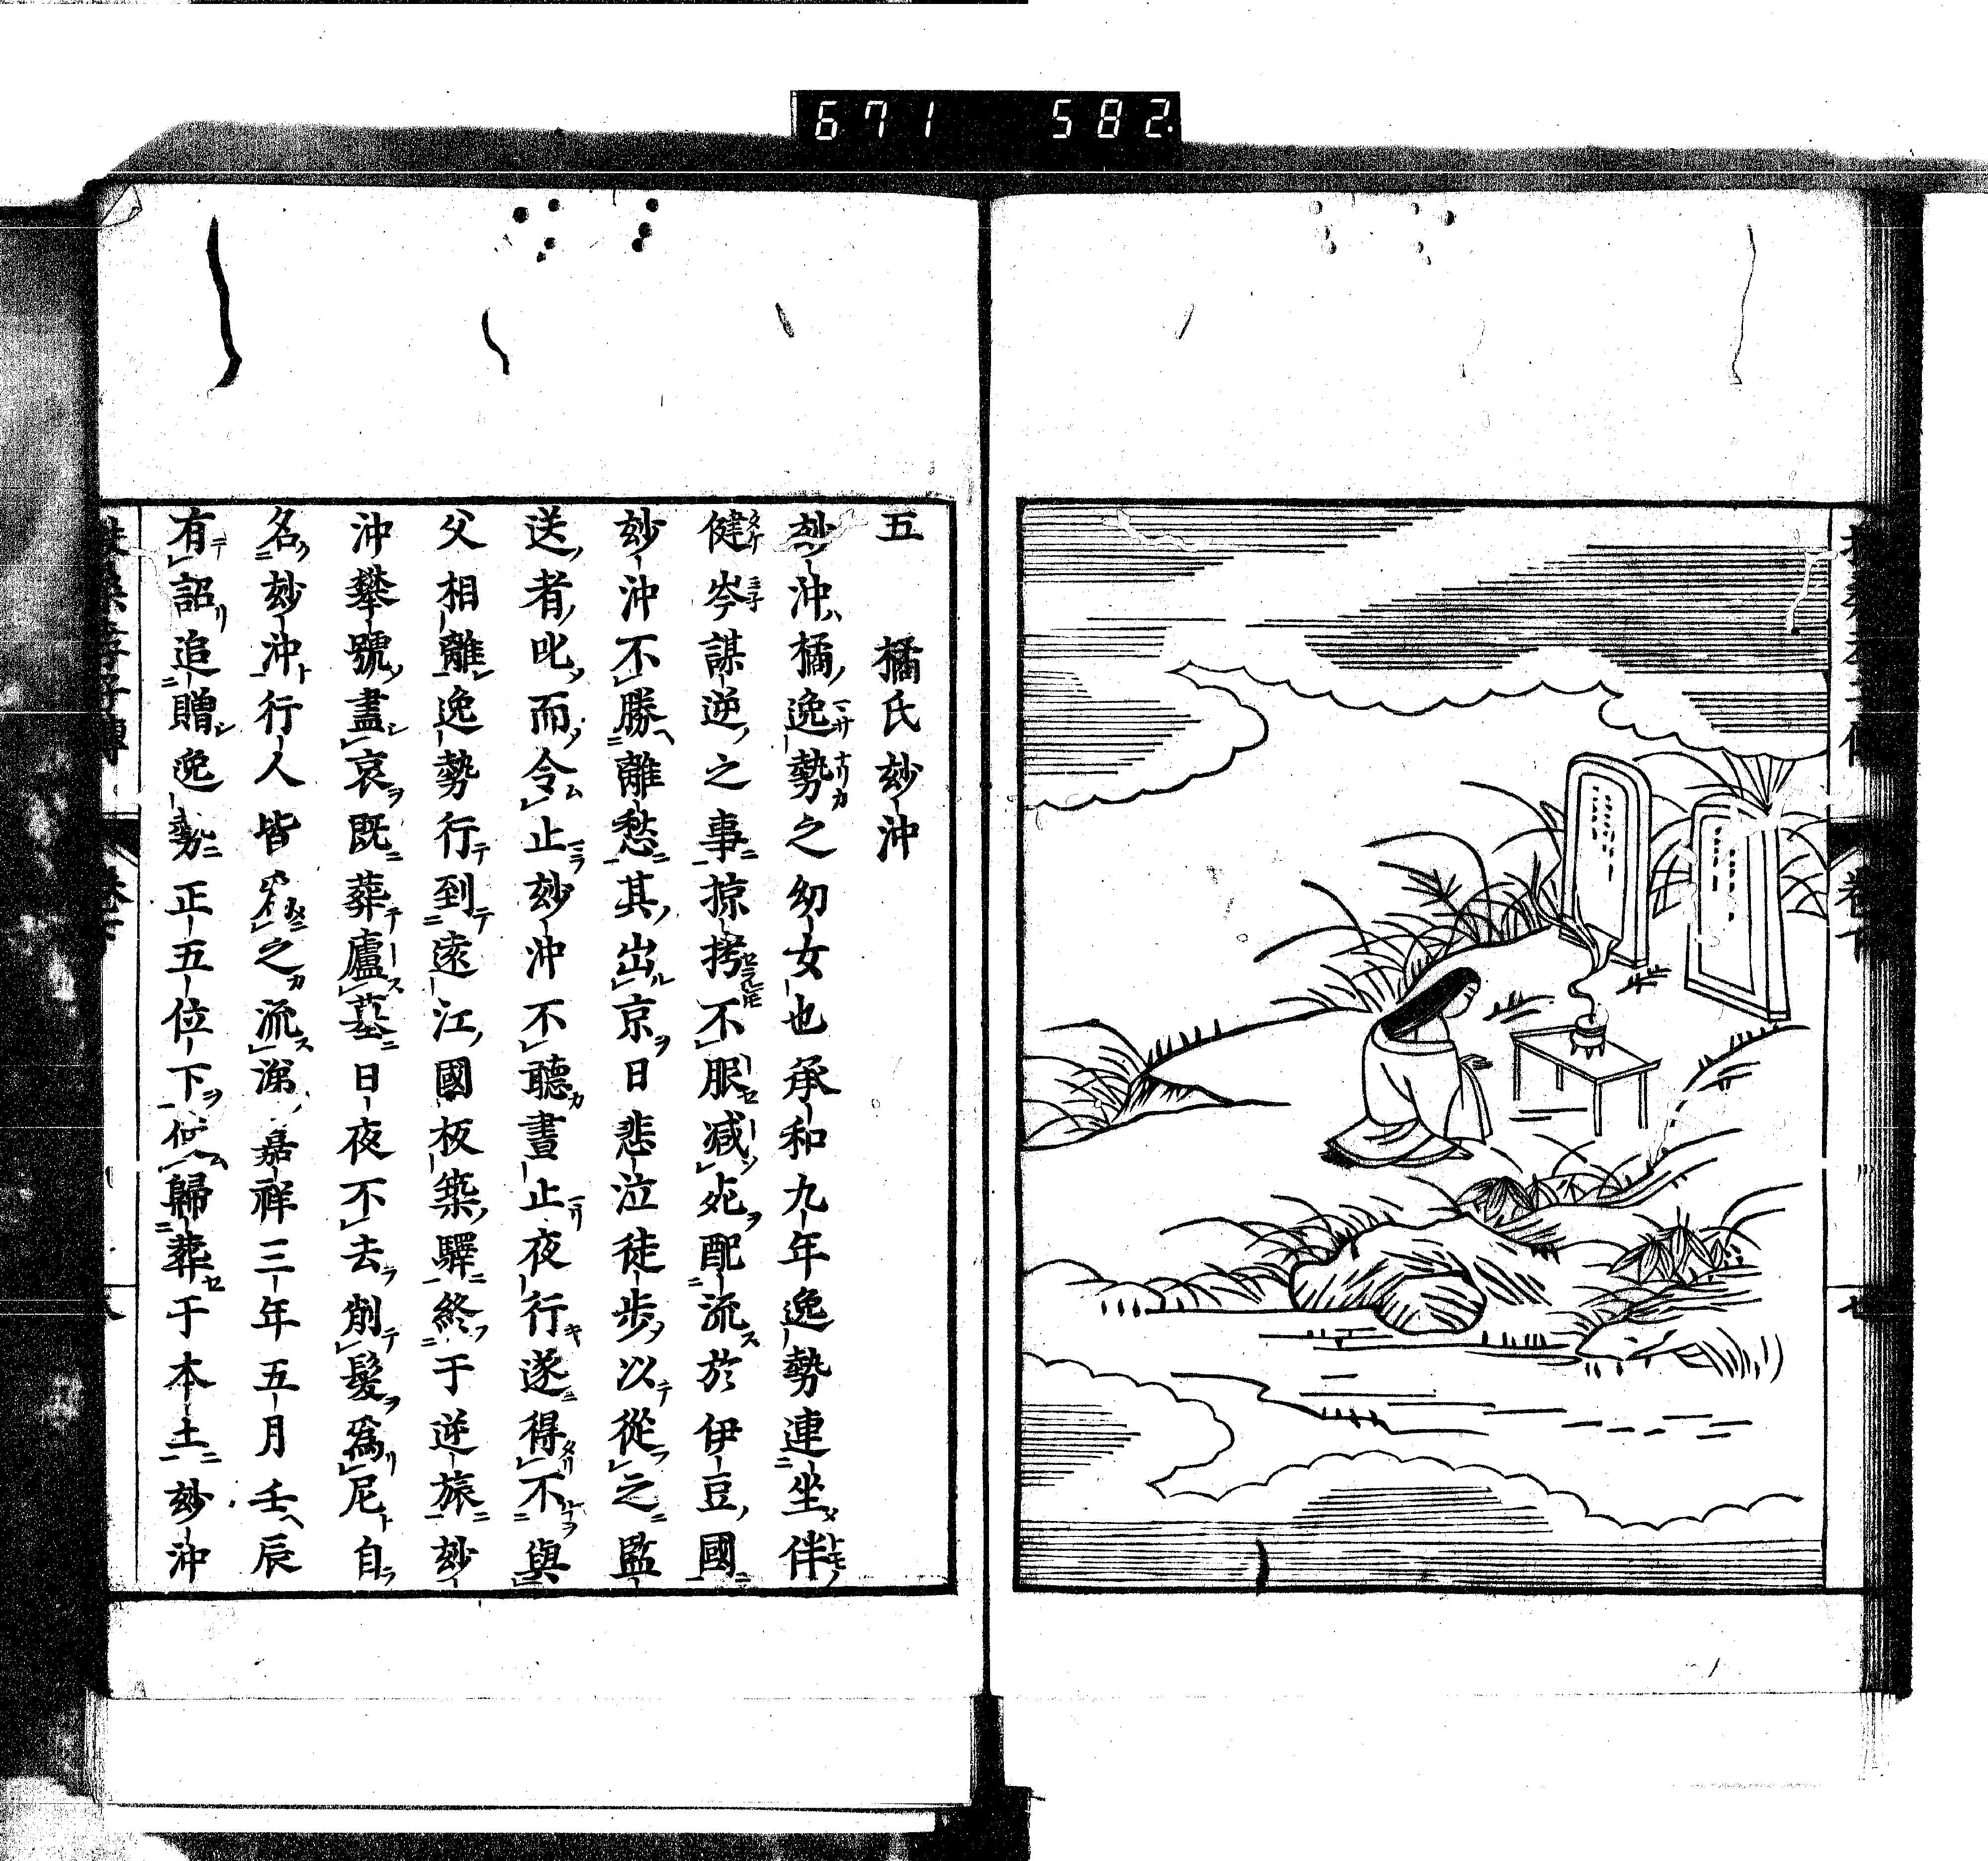 671 582
五 橘氏玅沖
玅沖橘逸勢之幼女也承和九年逸勢連坐伴
健岑謀逆之事掠拷不服減死配流於伊豆國
玅沖不勝離愁其出京日悲泣徒步以從之監
送者叱而令止玅沖不聽晝止夜行遂得不與
父相離逸勢行到遠江國板築驛終于逆旅玅
沖攀號盡哀既葬廬墓日夜不去削髮爲尼自
名玅沖行人皆爲之流涕嘉祥三年五月壬辰
有詔追贈逸勢正五位下歸葬于本土玅沖